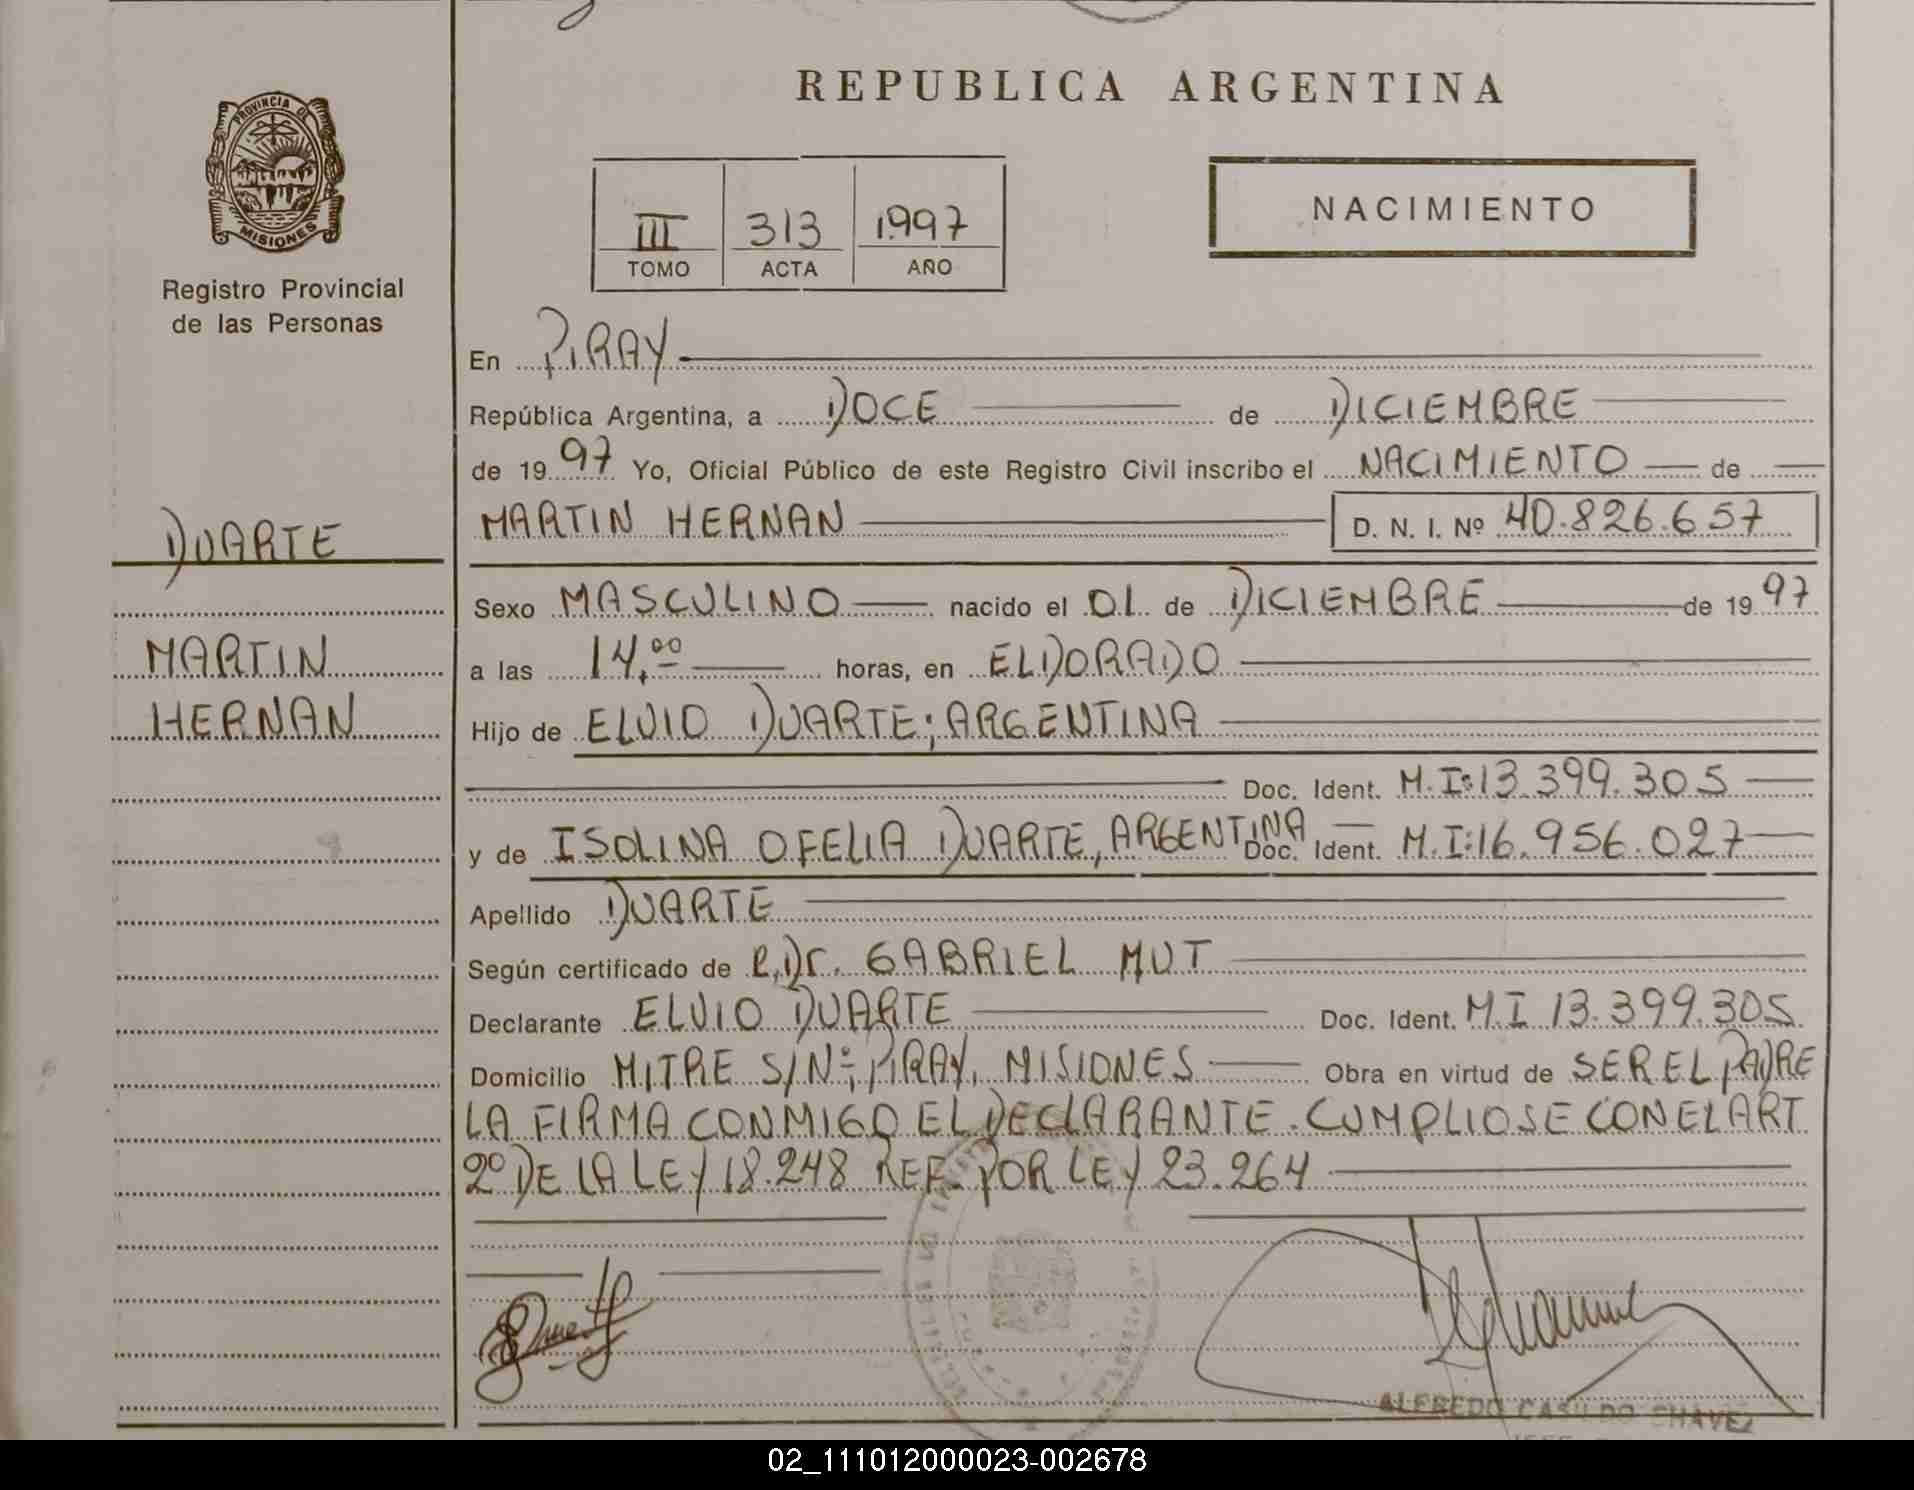 REPUBLICA ARGENTINA
PROVINCIA DE
MISIONES
Registro Provincial
de las Personas
III 313 1997
TOMO ACTA AÑO
NACIMIENTO
En PIRAY
República Argentina, a DOCE de DICIEMBRE
de 19 97 Yo, Oficial Público de este Registro Civil inscribo el NACIMIENTO de
DUARTE
MARTIN
HERNAN
MARTIN HERNAN D. N. I. Nº 40.826.657
Sexo MASCULINO nacido el 01 de DICIEMBRE de 19 97
a las 14,00 horas, en ELDORADO
Hijo de ELVIO DUARTE; ARGENTINA
Doc. Ident. M.I:13.399.305
y de ISOLINA OFELIA DUARTE, ARGENTINA Doc. Ident. M.I:16.956.027
Apellido DUARTE
Según certificado de Dr. GABRIEL MUT
Declarante ELVIO DUARTE Doc. Ident. M.I 13.399.305
Domicilio MITRE S/Nº; PIRAY, MISIONES Obra en virtud de SER EL PADRE
LA FIRMA CONMIGO EL DECLARANTE. CUMPLIOSE CON EL ART
2º DE LA LEY 18.248 REF. POR LEY 23.264
ALFREDO CASILDO CHAVEZ
02_111012000023-002678